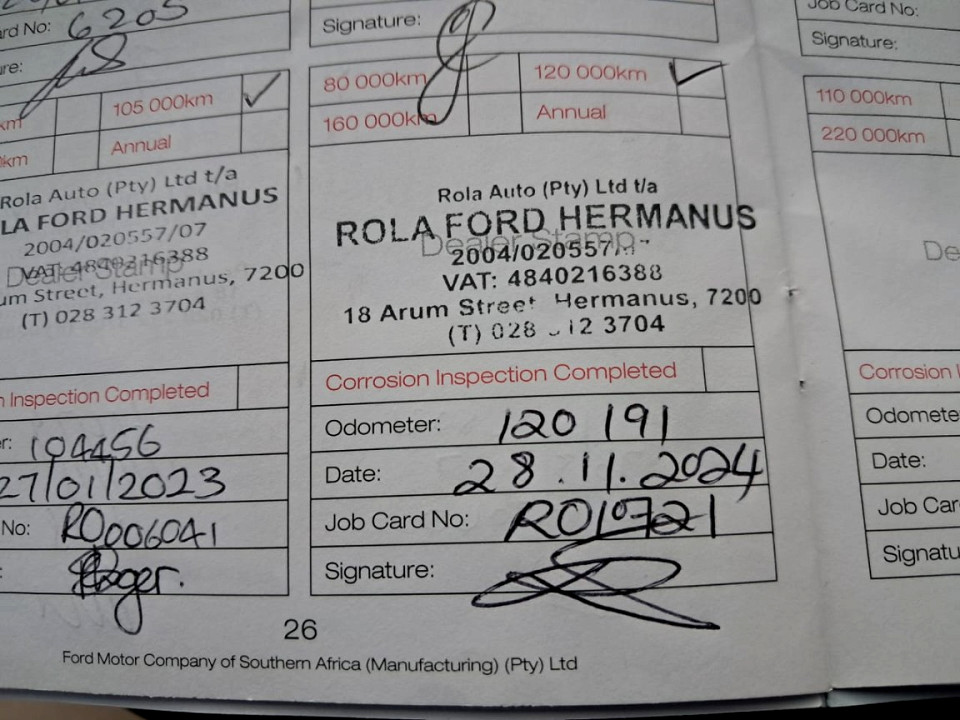 rd No: 6205
Signature:
Job Card No:
Signature:
re:
km
105 000km
km
Annual
Rola Auto (Pty) Ltd t/a
LA FORD HERMANUS
2004/020557/07
Dealer Stamp
VAT: 4840216388
um Street, Hermanus, 7200
(T) 028 312 3704
n Inspection Completed
r: 104456
27/01/2023
No: RO006041
: Roger.
80 000km
120 000km
160 000km
Annual
Rola Auto (Pty) Ltd t/a
ROLA FORD HERMANUS
Dealer Stamp
2004/020557/
VAT: 4840216388
18 Arum Street Hermanus, 7200
(T) 028 312 3704
Corrosion Inspection Completed
Odometer: 120 191
Date: 28.11.2024
Job Card No: RO10721
Signature:
110 000km
220 000km
De
Corrosion I
Odomete
Date:
Job Car
Signatu
26
Ford Motor Company of Southern Africa (Manufacturing) (Pty) Ltd